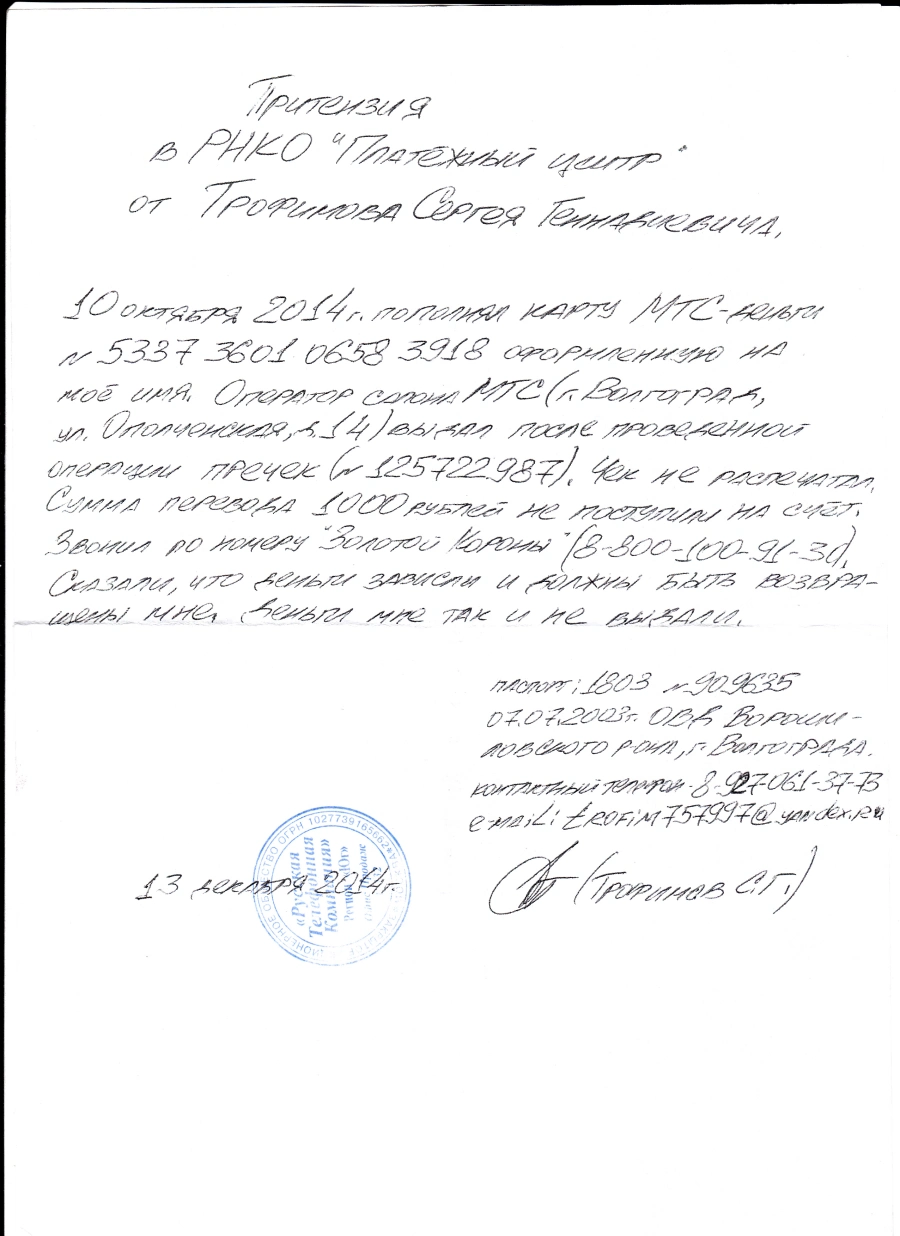 Притензия
в РНКО "Платёжный центр"
от Трофимова Сергея Геннадиевича.
10 октября 2014г. пополнял карту МТС-деньги
N 5337 3601 0658 3918 оформленную на
моё имя. Оператор салона МТС (г. Волгоград,
ул. Ополченская, д.14) выдал после проведенной
операции пречек (N 125722987). Чек не распечатал.
Сумма перевода 1000 рублей не поступили на счёт.
Звонил по номеру "Золотой Короны" (8-800-100-91-31).
Сказали, что деньги зависли и должны быть возвра-
щены мне. Деньги мне так и не выдали.
паспорт: 1803 N 909635
07.07.2003г. ОВД Вороши-
ловского р-она, г. Волгограда.
контактный телефон 8-927-061-37-73
e-mail: trofim757997@yandex.ru
13 декабря 2014г.
(Трофимов С.Г.)
ОБЩЕСТВО ОГРН 1027739165662
«Русская
Телефонная
Компания»
Регион «Юг»